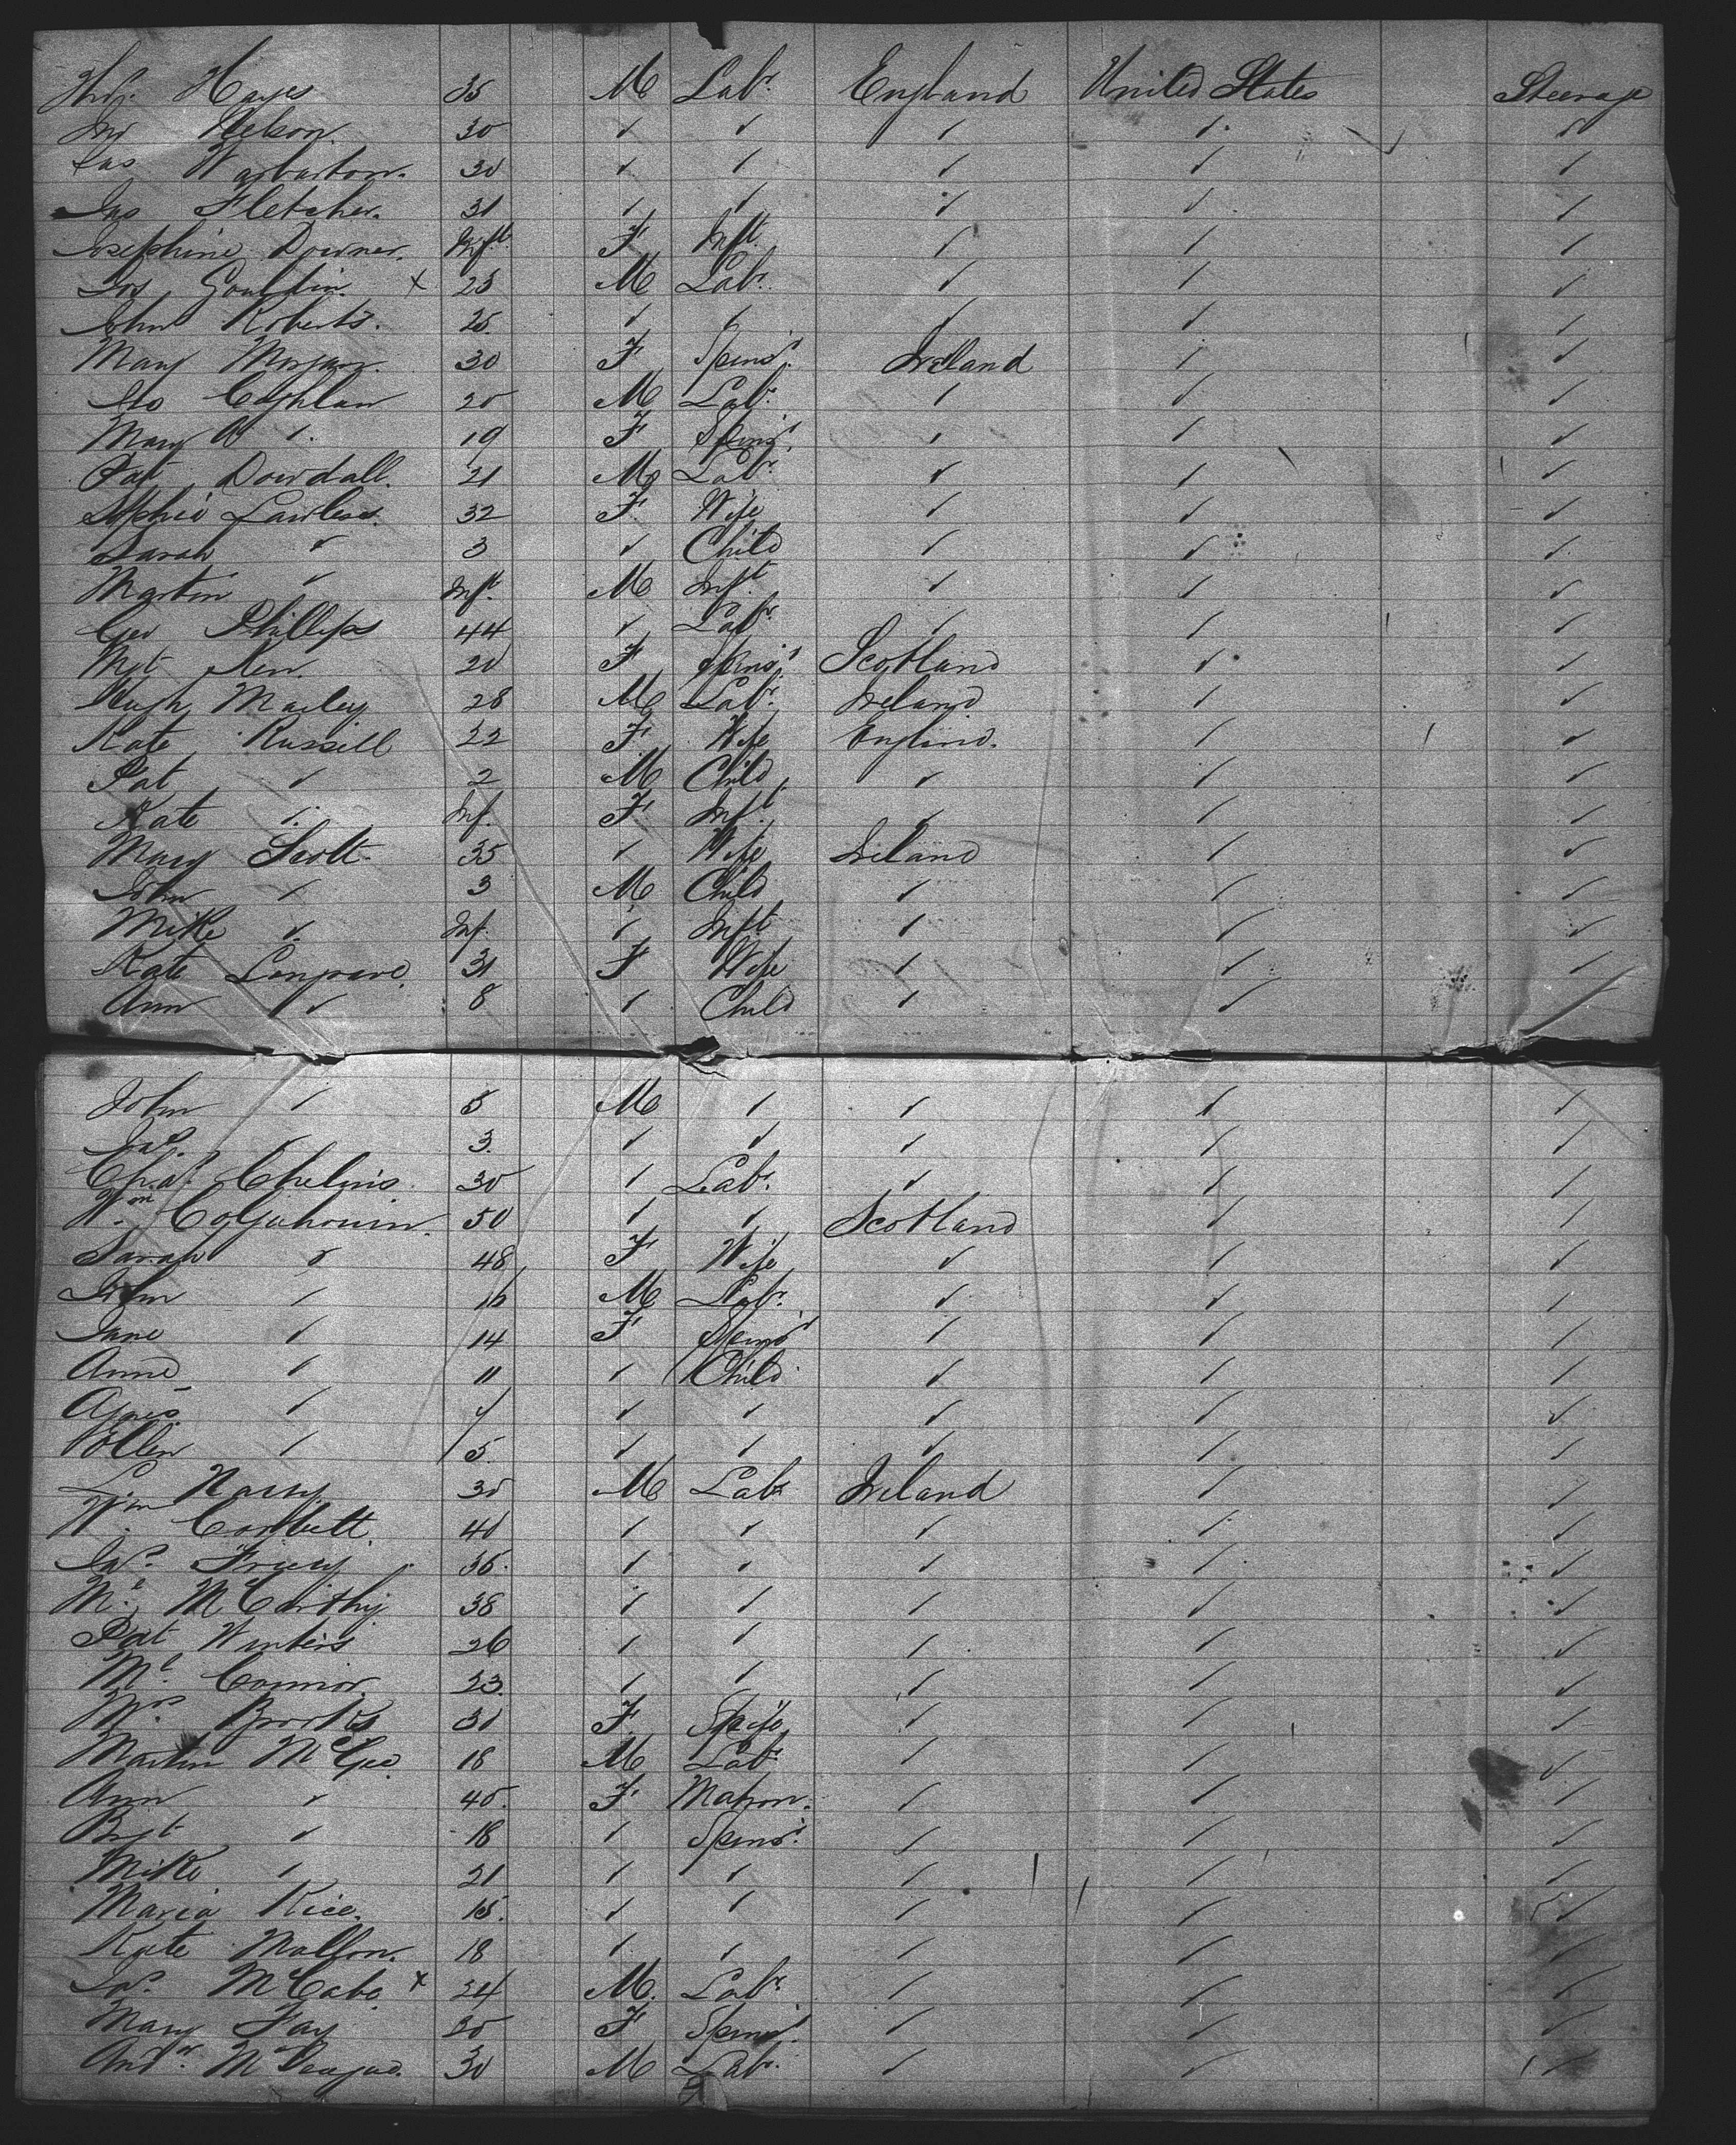 Hayes 35 M Labr England United States Steerage
Nelson 30 ✓ ✓ ✓ ✓ ✓
Jas Warburton. 30 ✓ ✓ ✓ ✓ ✓
Jas Fletcher. 31 ✓ ✓ ✓ ✓ ✓
Josephine Downer. Inft. F Inft. ✓ ✓ ✓
Jos x 23 M Labr. ✓ ✓ ✓
John Roberts. 25 ✓ ✓ ✓ ✓ ✓
Mary Morgan. 30 F Spinsr. Ireland ✓ ✓
Coghlan 20 M Labr. ✓ ✓ ✓
Mary A ✓ 19 F Spinsr. ✓ ✓ ✓
Pat Dowdall. 21 M Labr ✓ ✓ ✓
Sophia Lawless. 32 F Wife ✓ ✓ ✓
Sarah ✓ 3 ✓ Child ✓ ✓ ✓
Martin ✓ Inft. M Inft ✓ ✓ ✓
Geo Phillips 44 ✓ Labr ✓ ✓ ✓
Mgt 20 F Spinsr. Scotland ✓ ✓
Hugh Marley 28 M Labr. Ireland ✓ ✓
Kate Russell 22 F Wife England. ✓ ✓
Pat ✓ 2 M Child ✓ ✓ ✓
Kate ✓ Inf. F Inft. ✓ ✓ ✓
Mary Scott. 35 ✓ Wife Ireland ✓ ✓
John ✓ 3 M Child ✓ ✓ ✓
Mike ✓ Inf. ✓ Inft ✓ ✓ ✓
Kate 31 F Wife ✓ ✓ ✓
Ann ✓ ✓ 8 ✓ Child ✓ ✓ ✓
John ✓ 5 M ✓ ✓ ✓ ✓
Jas. ✓ 3. ✓ ✓ ✓ ✓ ✓
Chas 30 ✓ Labr. ✓ ✓ ✓
Wm. Colquhouin. 50 ✓ ✓ Scotland ✓ ✓
Sarah ✓ 48 F Wife ✓ ✓ ✓
John ✓ 16 M Labr. ✓ ✓ ✓
Jane ✓ 14 F Spinsr ✓ ✓ ✓
Anne ✓ 11 ✓ Child ✓ ✓ ✓
Agnes ✓ 7 ✓ ✓ ✓ ✓ ✓
✓ 5. ✓ ✓ ✓ ✓ ✓
30 M Labr Ireland ✓ ✓
Wm. Corbett. 40 ✓ ✓ ✓ ✓ ✓
Jas. 36. ✓ ✓ ✓ ✓ ✓
Ml. McCarthy 38 ✓ ✓ ✓ ✓ ✓
Pat Winters 26 ✓ ✓ ✓ ✓ ✓
Ml. Connor. 23. ✓ ✓ ✓ ✓ ✓
Mrs. Brooks 31 F. ✓ ✓ ✓
Martin McGee. 18 M Labr ✓ ✓ ✓
Ann ✓ 45. F Matron. ✓ ✓ ✓
Bgt ✓ 18 ✓ Spinsr. ✓ ✓ ✓
Mike ✓ 21 ✓ ✓ ✓ ✓ ✓
Maria Rice. 15. ✓ ✓ ✓ ✓ ✓
Kate Mallon. 18 ✓ ✓ ✓ ✓ ✓
Jas. McCabe. x 24 M. Labr. ✓ ✓ ✓
Mary Fay 20 F Spinsr. ✓ ✓ ✓
Andw. 30 M Labr. ✓ ✓ ✓